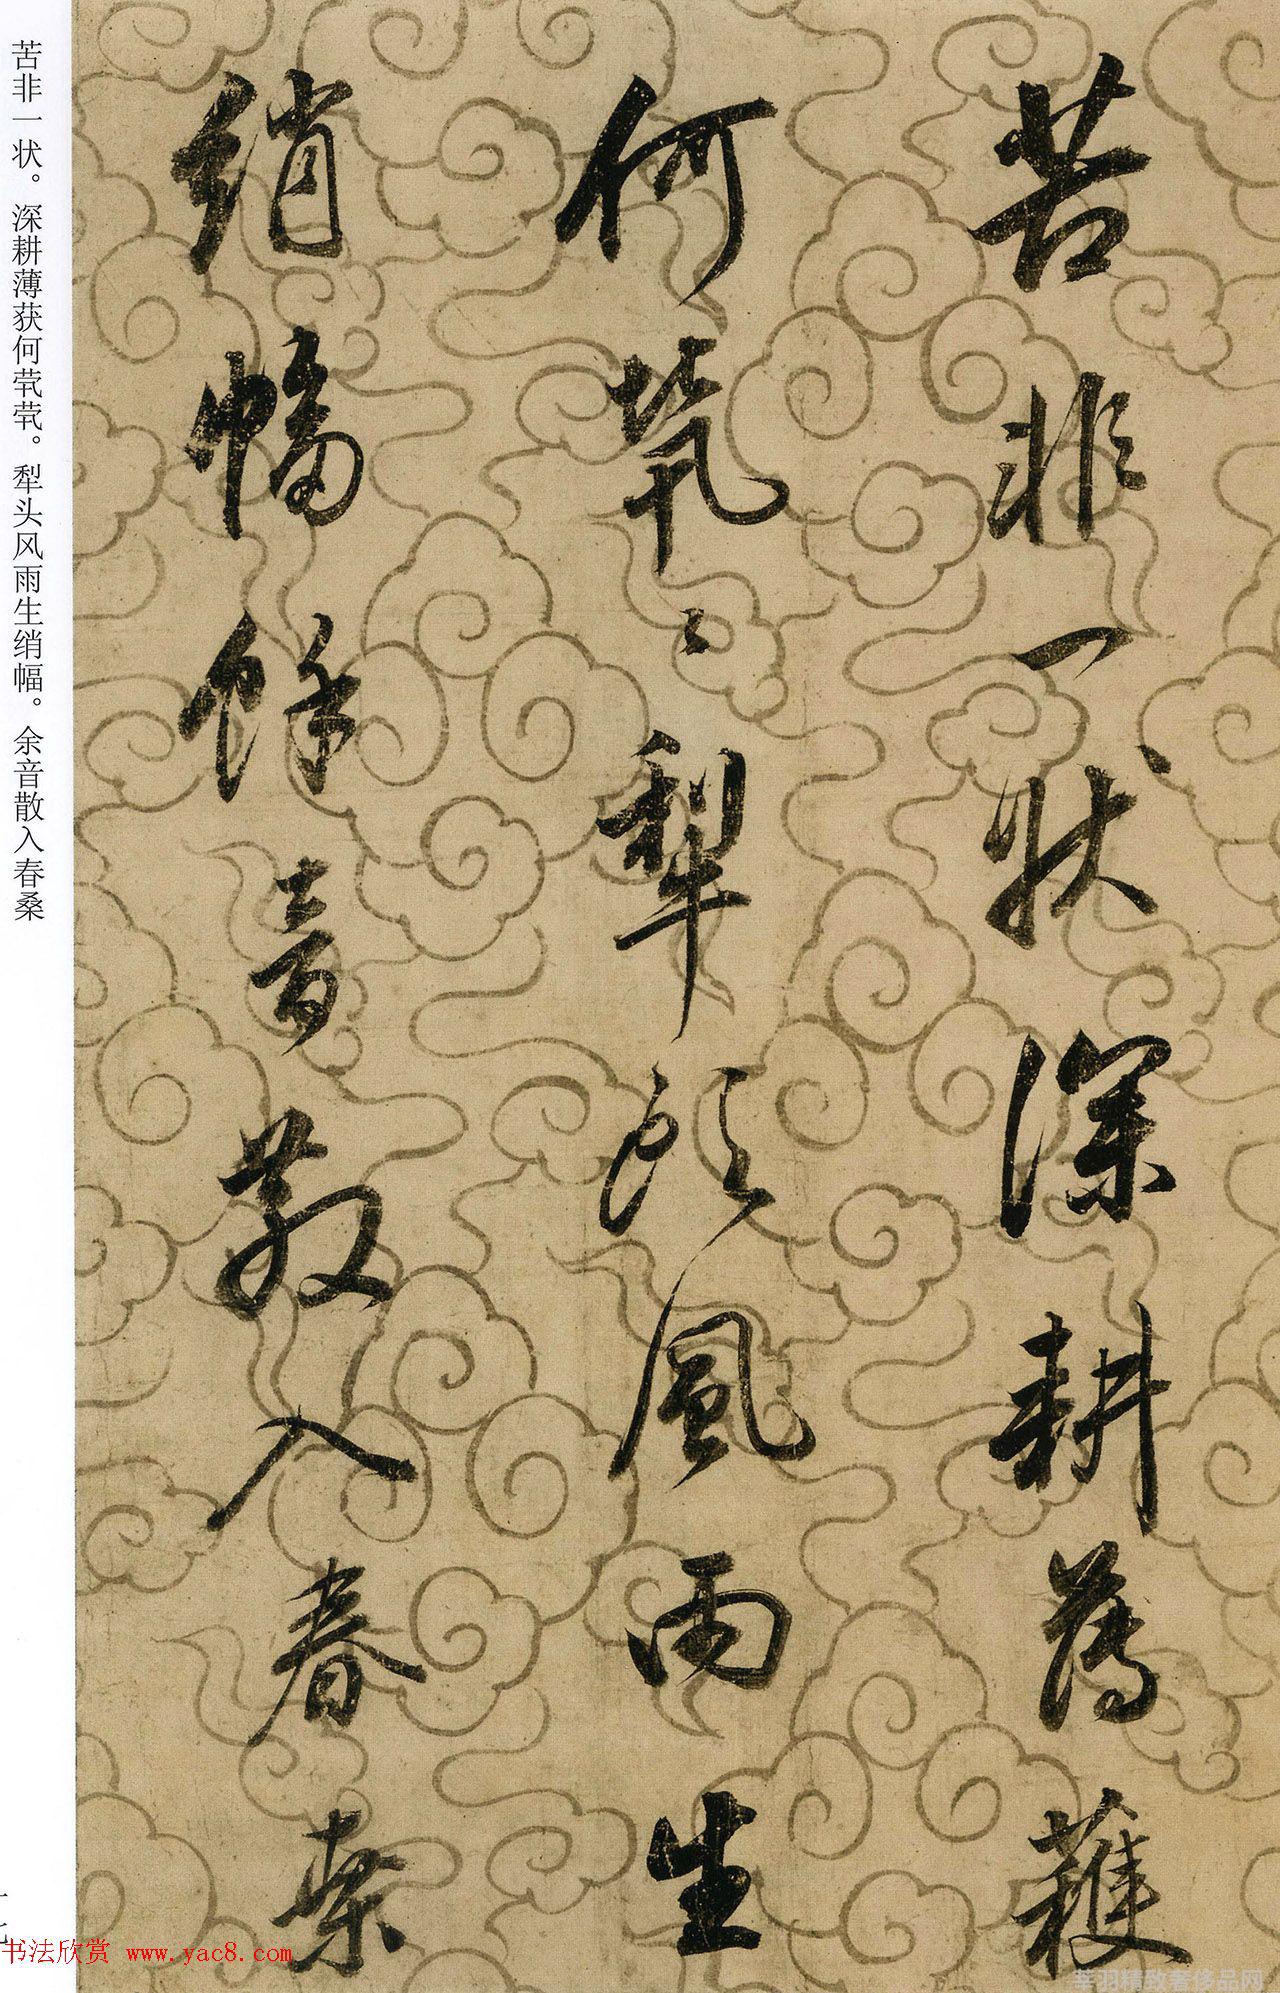 苦非一狀深耕薄穫
何煢々犂頭風雨生
綃幅餘音散入春桒
苦非一状。深耕薄获何茕茕。犁头风雨生绡幅。余音散入春桑
书法欣赏 www.yac8.com